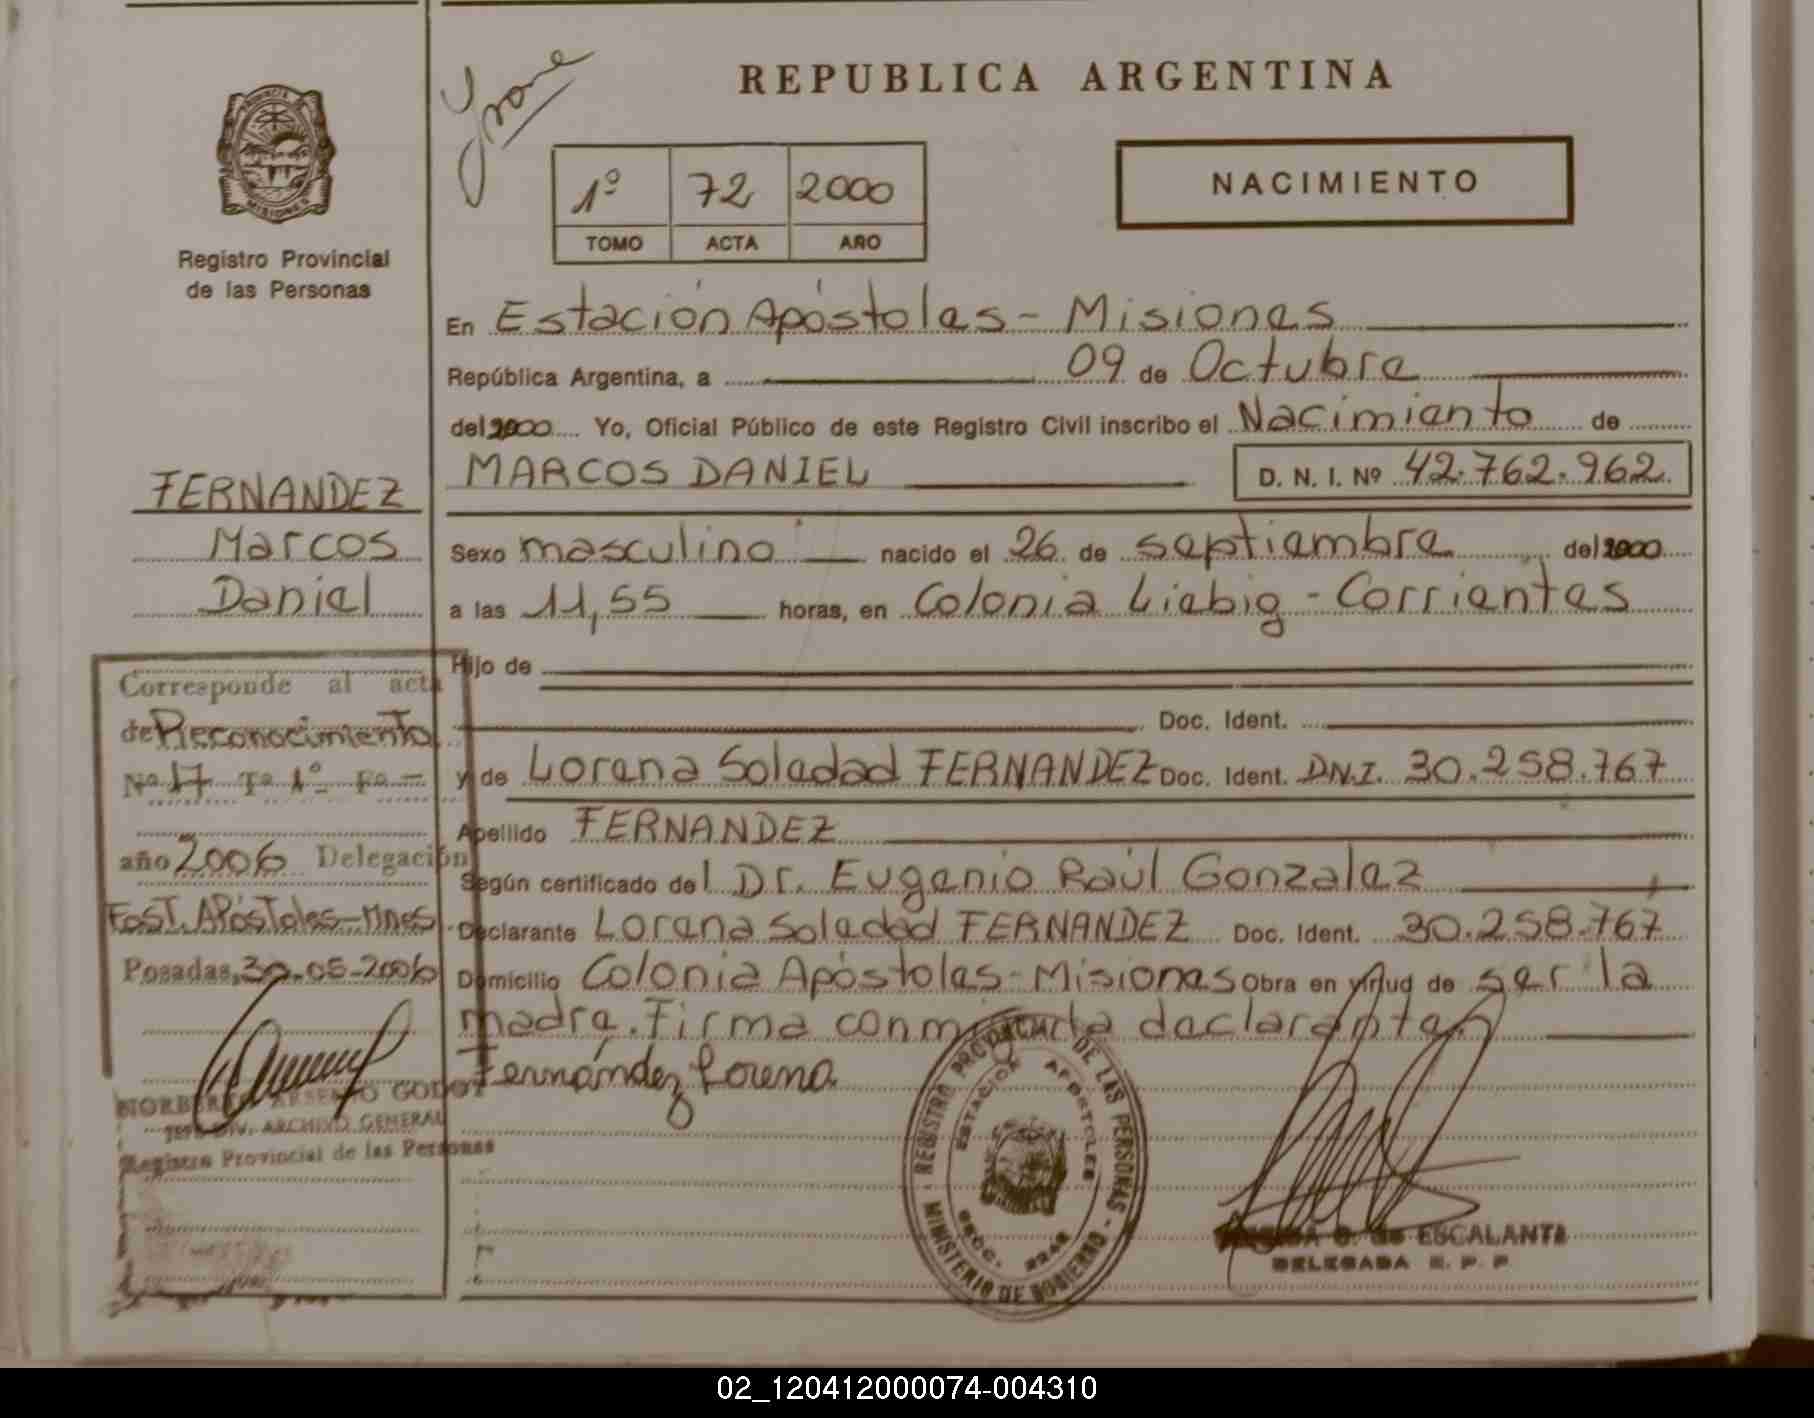 REPUBLICA ARGENTINA
PROVINCIA DE
MISIONES
Registro Provincial
de las Personas
1º 72 2000
TOMO ACTA AÑO
NACIMIENTO
En Estación Apóstoles - Misiones
República Argentina, a 09 de Octubre
del 2000 Yo, Oficial Público de este Registro Civil inscribo el Nacimiento de
MARCOS DANIEL D. N. I. Nº 42.762.962
FERNANDEZ
Marcos
Daniel
Sexo masculino nacido el 26 de septiembre del 2000
a las 11,55 horas, en Colonia Liebig - Corrientes
Hijo de
Doc. Ident.
y de Lorena Soledad FERNANDEZ Doc. Ident. D.N.I. 30.258.767
Apellido FERNANDEZ
Según certificado del Dr. Eugenio Raúl Gonzalez
Declarante Lorena Soledad FERNANDEZ Doc. Ident. 30.258.767
Domicilio Colonia Apóstoles - Misiones Obra en virtud de ser la
madre. Firma conmigo la declarante
Fernández Lorena
Corresponde al acta
de Reconocimiento
Nº 17 Tº 1º Fº -
año 2006 Delegación
Est. Apóstoles - Mnes
Posadas, 30-05-2006
NORBERTO ARSENIO GODOY
JEFE DIV. ARCHIVO GENERAL
Registro Provincial de las Personas
REGISTRO PROVINCIAL DE LAS PERSONAS
ESTACION APOSTOLES
MINISTERIO DE GOBIERNO
de ESCALANTE
DELEGADA R. P. P.
02_120412000074-004310